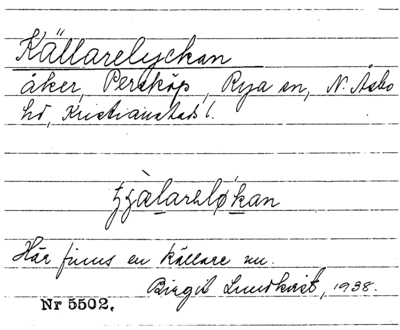 Källarelyckan
åker, Persköp, Rya sn, N. Åsbo
hd, Kristianstads l.
Här finns en källare nu.
Birgit Lundkvist, 1938.
Nr 5502.